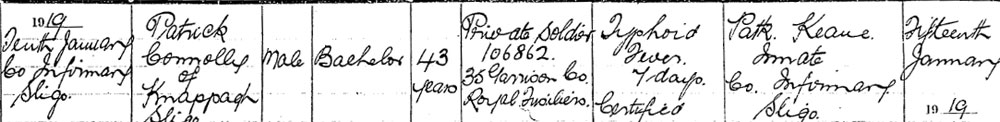 1919
Tenth January
Co Infirmary
Sligo.
Patrick
Connolly
of
Knappagh
Sligo
Male
Bachelor
43
years
Private Soldier
106862.
35 Garrison Co.
Royal Fusiliers.
Typhoid
Fever.
7 days.
Certified
Patk. Keane.
Inmate
Co. Infirmary
Sligo.
Fifteenth
January
1919